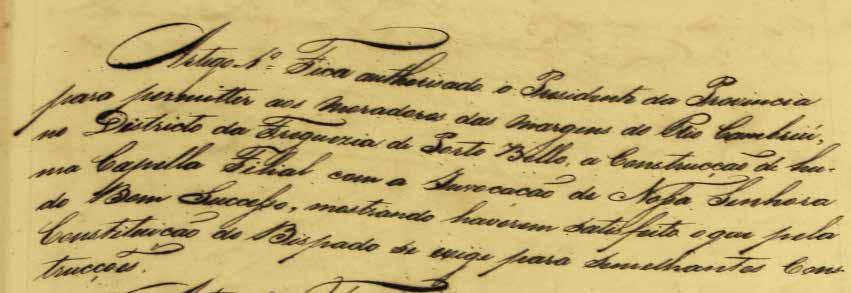 Artigo 1º Fica authorisado o Presidente da Provincia
para permitter aos moradores das margens do Rio Cambriú,
no Districto da Freguezia de Porto Bello, a Construcção de hu-
ma Capella Filial com a Invocação de Nossa Senhora
do Bom Successo, mostrando haverem satisfeito o que pela
Constituição do Bispado se exige para semelhantes Cons-
trucções.